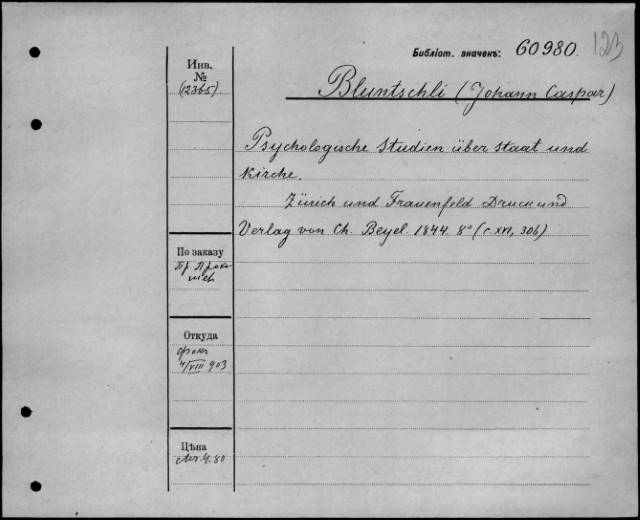 Библіот. значекъ: 60980. 123
Инв.
№
(12365)
Bluntschli (Johann Caspar)
Psychologische Studien über Staat und
Kirche.
Zürich und Frauenfeld Druck und
Verlag von Ch. Beyel. 1844. 8° (c. XVI, 306)
По заказу
Пр.
Откуда
4/VIII 903
Цѣна
4.80